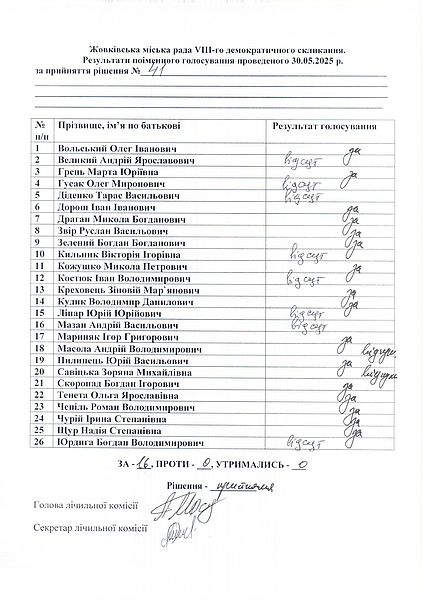 Жовківська міська рада VIII-го демократичного скликання.
Результати поіменного голосування проведеного 30.05.2025 р.
за прийняття рішення № 41
№ п/п Прізвище, ім’я по батькові Результат голосування
1 Вольський Олег Іванович за
2 Великий Андрій Ярославович відсут
3 Грень Марта Юріївна за
4 Гусак Олег Миронович відсут
5 Діденко Тарас Васильович відсут
6 Дорош Іван Іванович за
7 Драган Микола Богданович за
8 Звір Руслан Васильович за
9 Зелений Богдан Богданович за
10 Кильник Вікторія Ігорівна відсут
11 Кожушко Микола Петрович за
12 Костюк Іван Володимирович відсут
13 Креховець Зіновій Мар`янович за
14 Кудик Володимир Данилович за
15 Ліпар Юрій Юрійович відсут
16 Мазан Андрій Васильович відсут
17 Мариняк Ігор Григорович за
18 Масола Андрій Володимирович
19 Пилипець Юрій Васильович за
20 Савіцька Зоряна Михайлівна
21 Скоропад Богдан Ігорович за
22 Тенета Ольга Ярославівна за
23 Чепіль Роман Володимирович за
24 Чурій Ірина Степанівна за
25 Щур Надія Степанівна за
26 Юрдига Богдан Володимирович відсут
ЗА - 16, ПРОТИ - 0, УТРИМАЛИСЬ - 0
Рішення - прийнято
Голова лічильної комісії
Секретар лічильної комісії